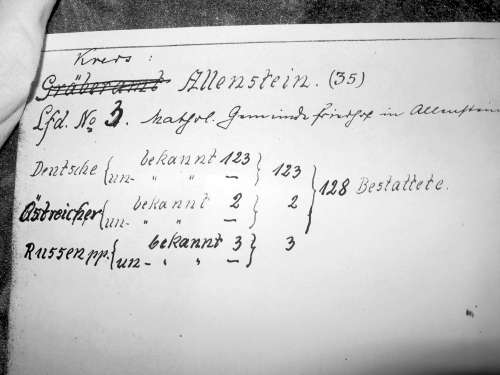 Kreis:
Gräberamt Allenstein. (35)
Lfd. No 3. Kathol. Gemeindefriedhof in Allenstein
Deutsche { bekannt 123 } 123
un- " " –
Östreicher { bekannt 2 } 2 } 128 Bestattete.
un- " " –
Russen pp. { bekannt 3 } 3
un- " " –